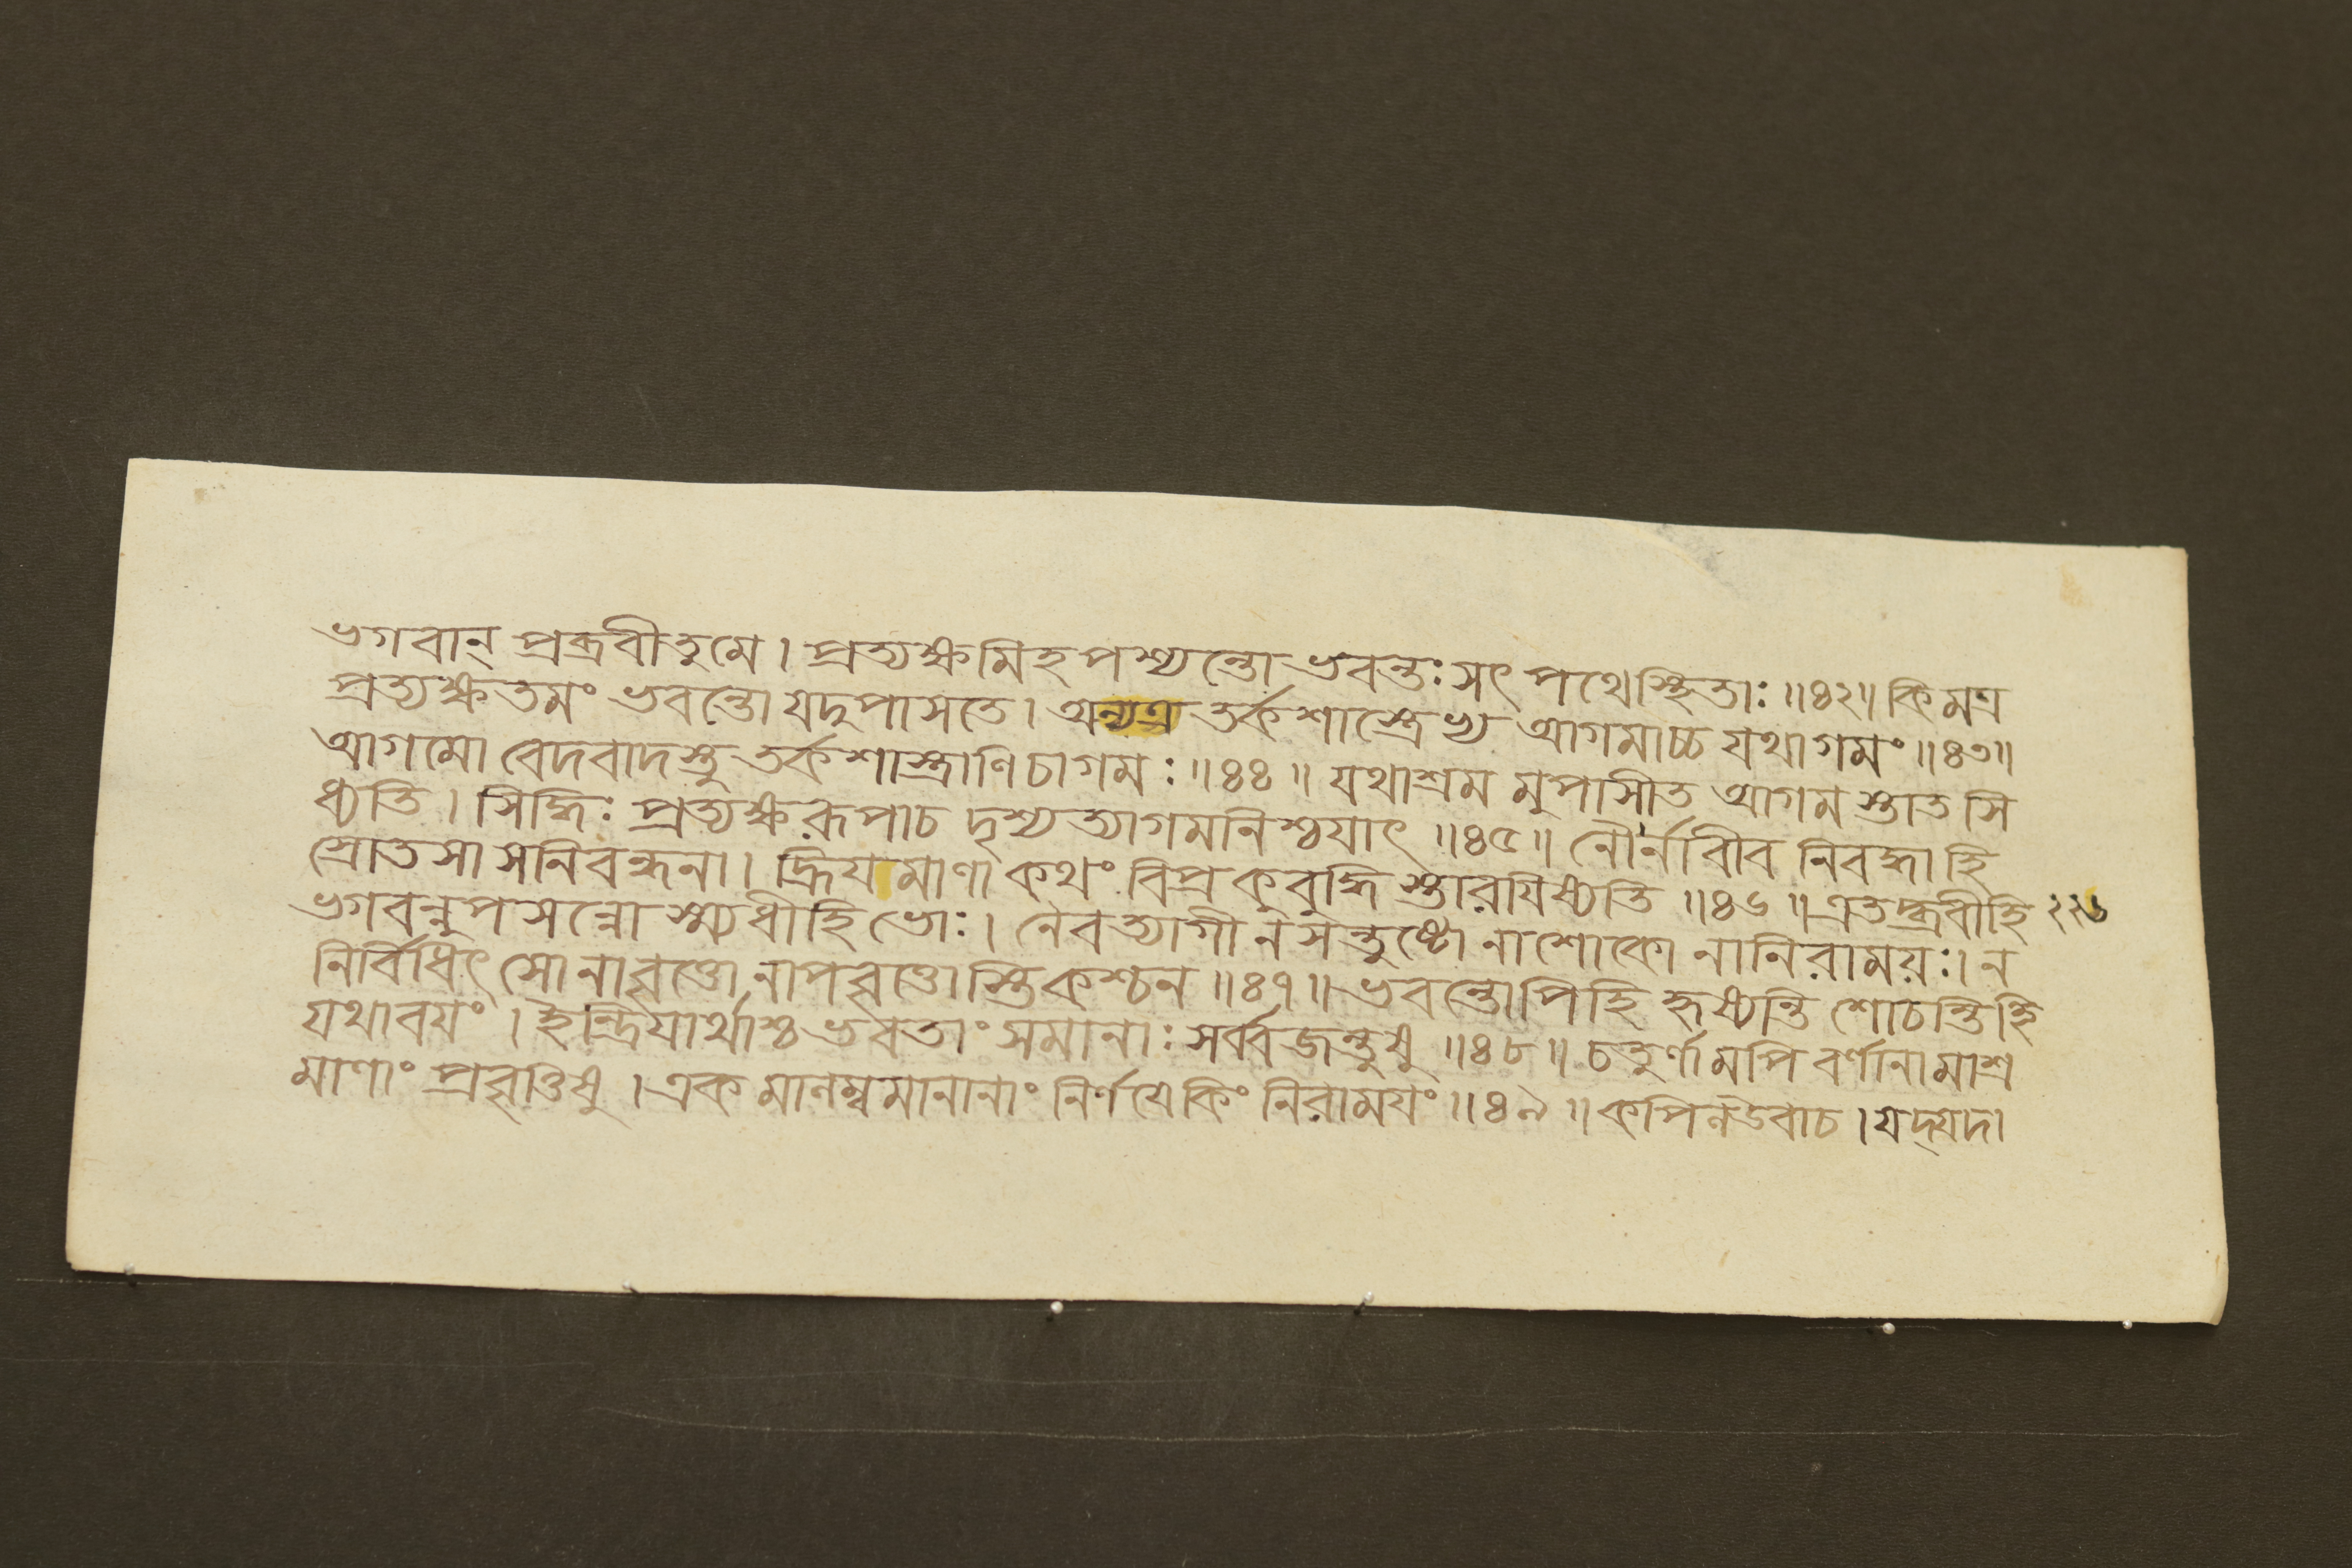 ভগবান্ প্রব্রবীতুমে। প্রত্যক্ষমিহ পশ্যন্তো ভবন্তঃ সৎ পথেস্থিতাঃ ॥৪২॥ কিমত্র
প্রত্যক্ষতমং ভবন্তো যদুপাসতে। অন্যত্র তর্কশাস্ত্রেভ্য আগমাচ্চ যথাগমং ॥৪৩॥
আগমো বেদবাদস্তু তর্কশাস্ত্রাণিচাগমঃ ॥৪৪॥ যথাশ্রম মুপাসীত আগম স্তাত সি
ধ্যতি। সিদ্ধিঃ প্রত্যক্ষরূপাচ দৃশ্যত্যাগমনিশ্চয়াৎ ॥৪৫॥ নৌর্নাবীব নিবদ্ধাহি
স্রোতসা সনিবন্ধনা। হ্রিয়মাণা কথং বিপ্র কুবুদ্ধি স্তারয়িষ্যতি ॥৪৬॥ এতদ্ব্রবীহি
ভগবন্নুপসন্নো স্ম্যধীহি ভোঃ। নৈবত্যাগী নসন্তুষ্টো নাশোকো নানিরাময়ঃ। ন
নির্বিধিৎ সোনাবৃত্তো নাপবৃত্তোস্তি কশ্চন ॥৪৭॥ ভবন্তোপিহি হৃষ্যন্তি শোচন্তিহি
যথাবয়ং। ইন্দ্রিয়ার্থাশ্চ ভবতাং সমানাঃ সর্ব্বজন্তুষু ॥৪৮॥ চতুর্ণামপি বর্ণানামাশ্র
মাণাং প্রবৃত্তিষু। একমালম্বমানানাং নির্ণয়েকিং নিরাময়ং ॥৪৯॥ কপিলউবাচ। যদ্যদা